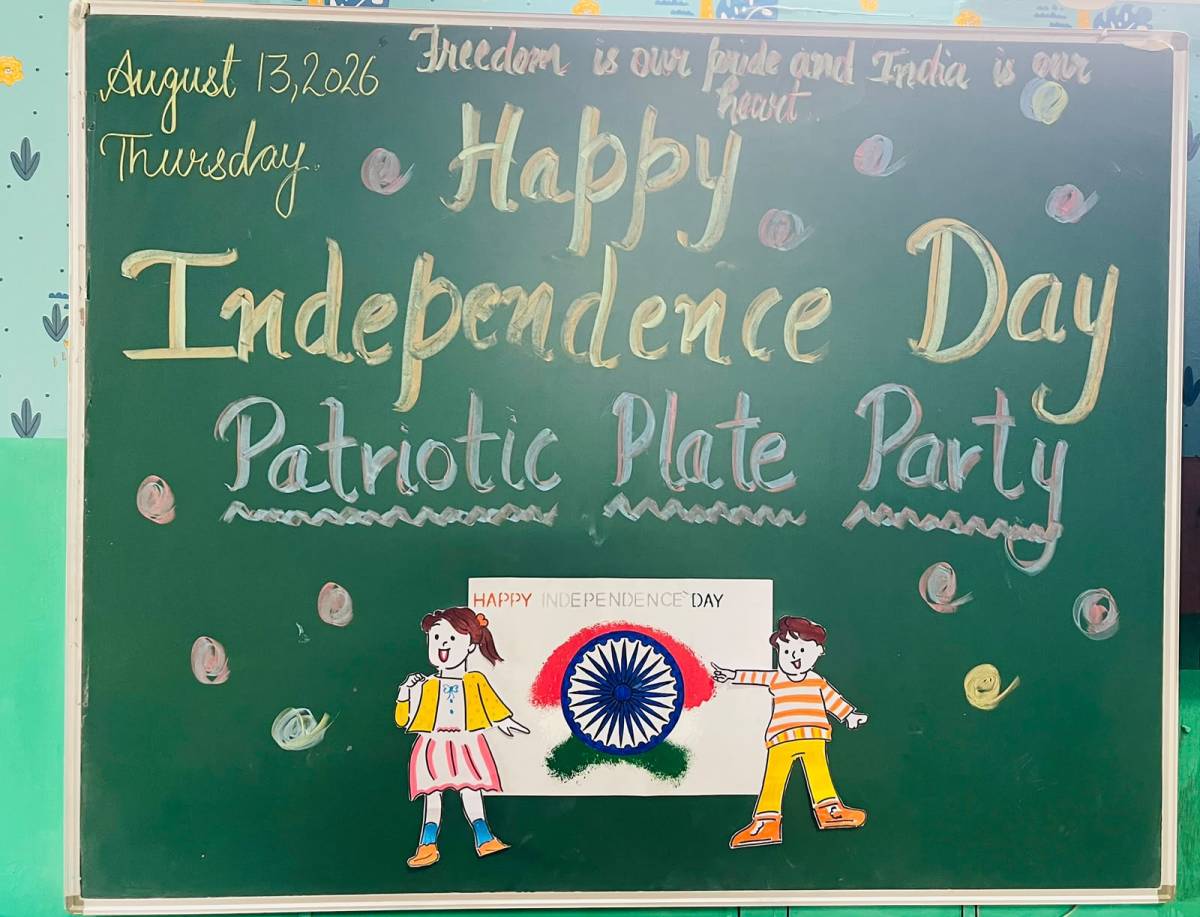 August 13, 2026
Thursday.
Freedom is our pride and India is our
heart..
Happy
Independence Day
Patriotic Plate Party
HAPPY INDEPENDENCE DAY